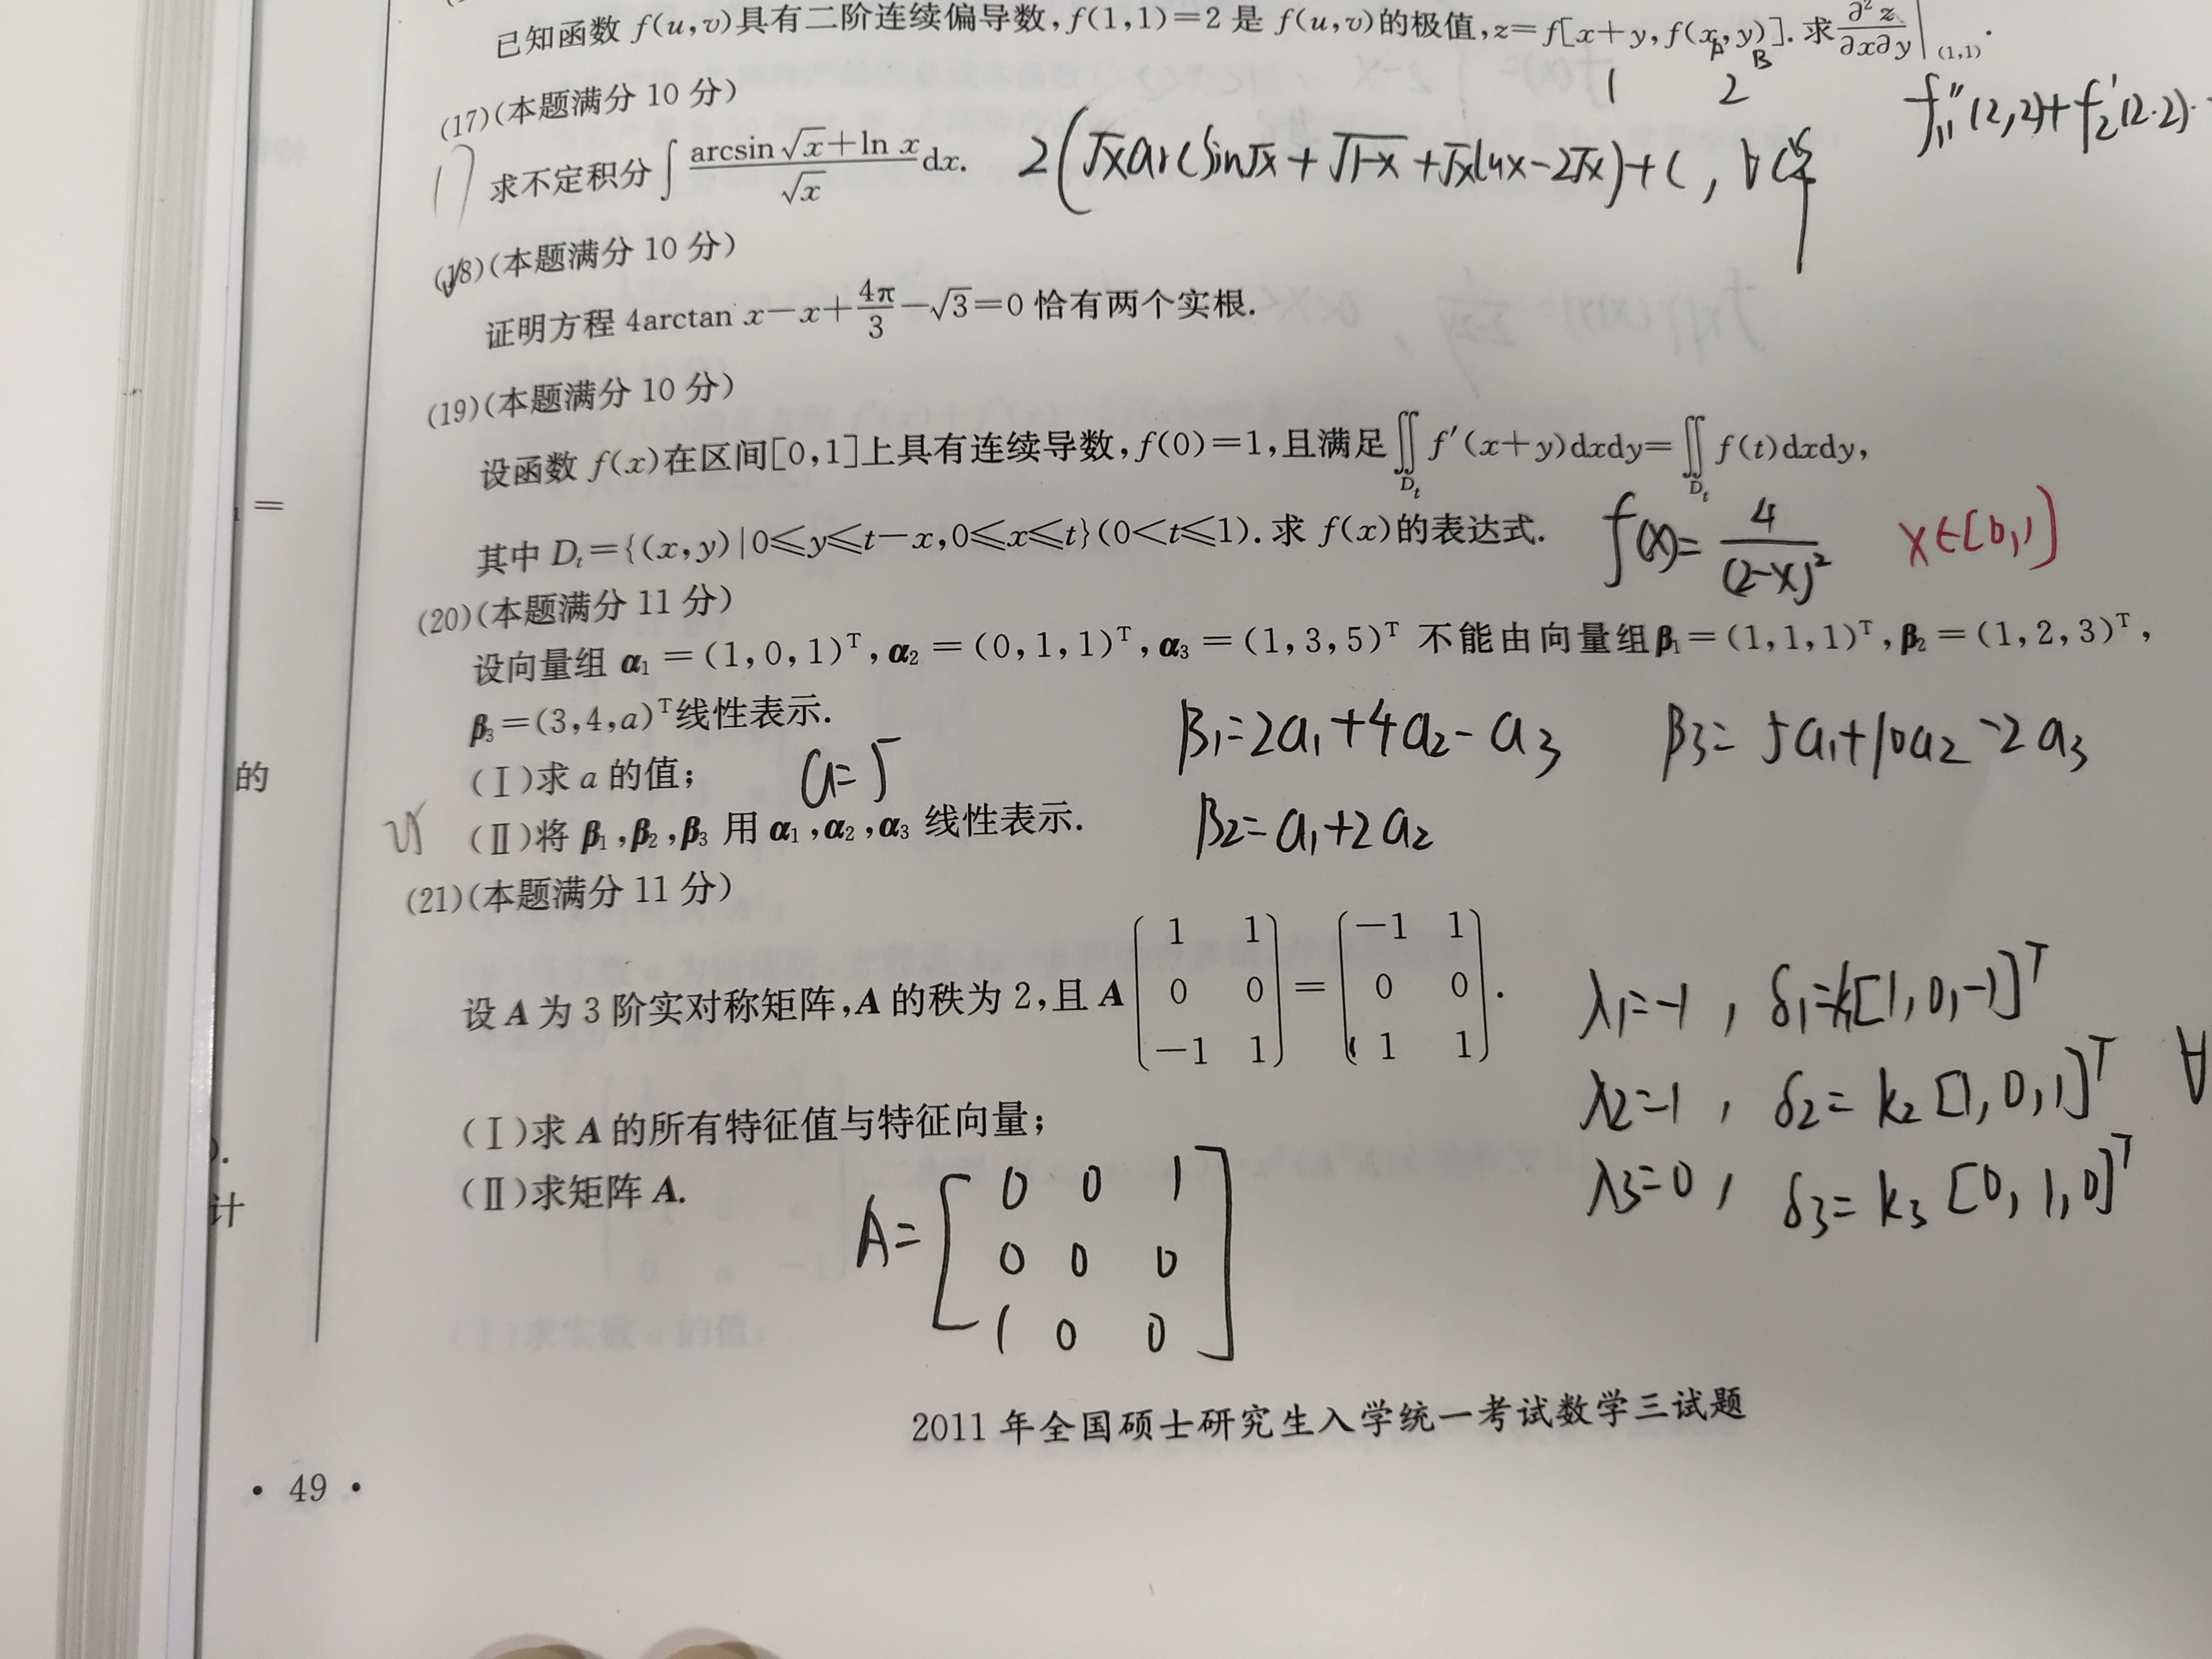 已知函数 f(u,v)具有二阶连续偏导数,f(1,1)=2 是 f(u,v)的极值,z=f[x+y,f(x,y)].求∂²z/∂x∂y|(1,1).
A B
1 2
f₁₁″(2,2)+f₂′(2,2)·
(17)(本题满分 10 分)
17
求不定积分∫(arcsin√x+ln x)/√x dx.
2(√x arcsin√x+√1-x+√x lnx-2√x)+C, ∀C
(18)(本题满分 10 分)
证明方程 4arctan x-x+4π/3-√3=0 恰有两个实根.
(19)(本题满分 10 分)
设函数 f(x)在区间[0,1]上具有连续导数,f(0)=1,且满足∬Dₜ f′(x+y)dxdy=∬Dₜ f(t)dxdy,
=
其中 Dₜ={(x,y)|0≤y≤t-x,0≤x≤t}(0<t≤1).求 f(x)的表达式.
f(x)=4/(2-x)²
x∈[0,1]
(20)(本题满分 11 分)
设向量组 α₁=(1,0,1)ᵀ,α₂=(0,1,1)ᵀ,α₃=(1,3,5)ᵀ 不能由向量组β₁=(1,1,1)ᵀ,β₂=(1,2,3)ᵀ,
β₃=(3,4,a)ᵀ线性表示.
β₁=2a₁+4a₂-a₃ β₃=5a₁+10a₂-2a₃
的
(Ⅰ)求 a 的值;
a=5
(Ⅱ)将 β₁,β₂,β₃ 用 α₁,α₂,α₃ 线性表示.
β₂=a₁+2a₂
(21)(本题满分 11 分)
设 A 为 3 阶实对称矩阵,A 的秩为 2,且 A(1 1; 0 0; -1 1)=(-1 1; 0 0; 1 1).
λ₁=-1, δ₁=k₁[1,0,-1]ᵀ
λ₂=1, δ₂=k₂[1,0,1]ᵀ ∀
λ₃=0, δ₃=k₃[0,1,0]ᵀ
(Ⅰ)求 A 的所有特征值与特征向量;
(Ⅱ)求矩阵 A.
计
A=
0 0 1
0 0 0
1 0 0
2011 年全国硕士研究生入学统一考试数学三试题
· 49 ·